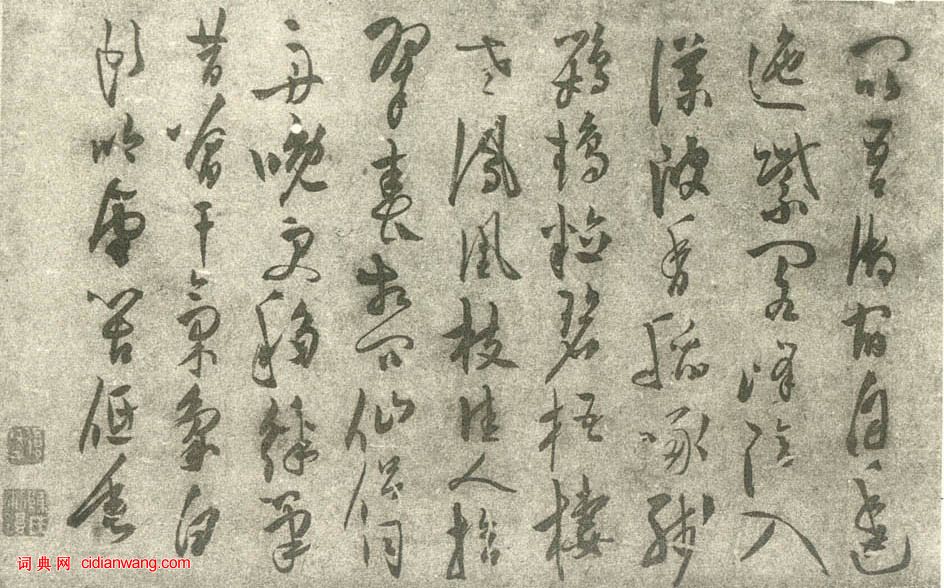 昆吾御宿自逶
迤紫閣峰陰入
渼陂香稻啄殘
鸚鵡粒碧梧棲
老鳳凰枝佳人拾
翠春相問仙侶同
舟晚更移綵筆
昔曾干氣象白
頭吟望苦低垂
词典网 cidianwang.com